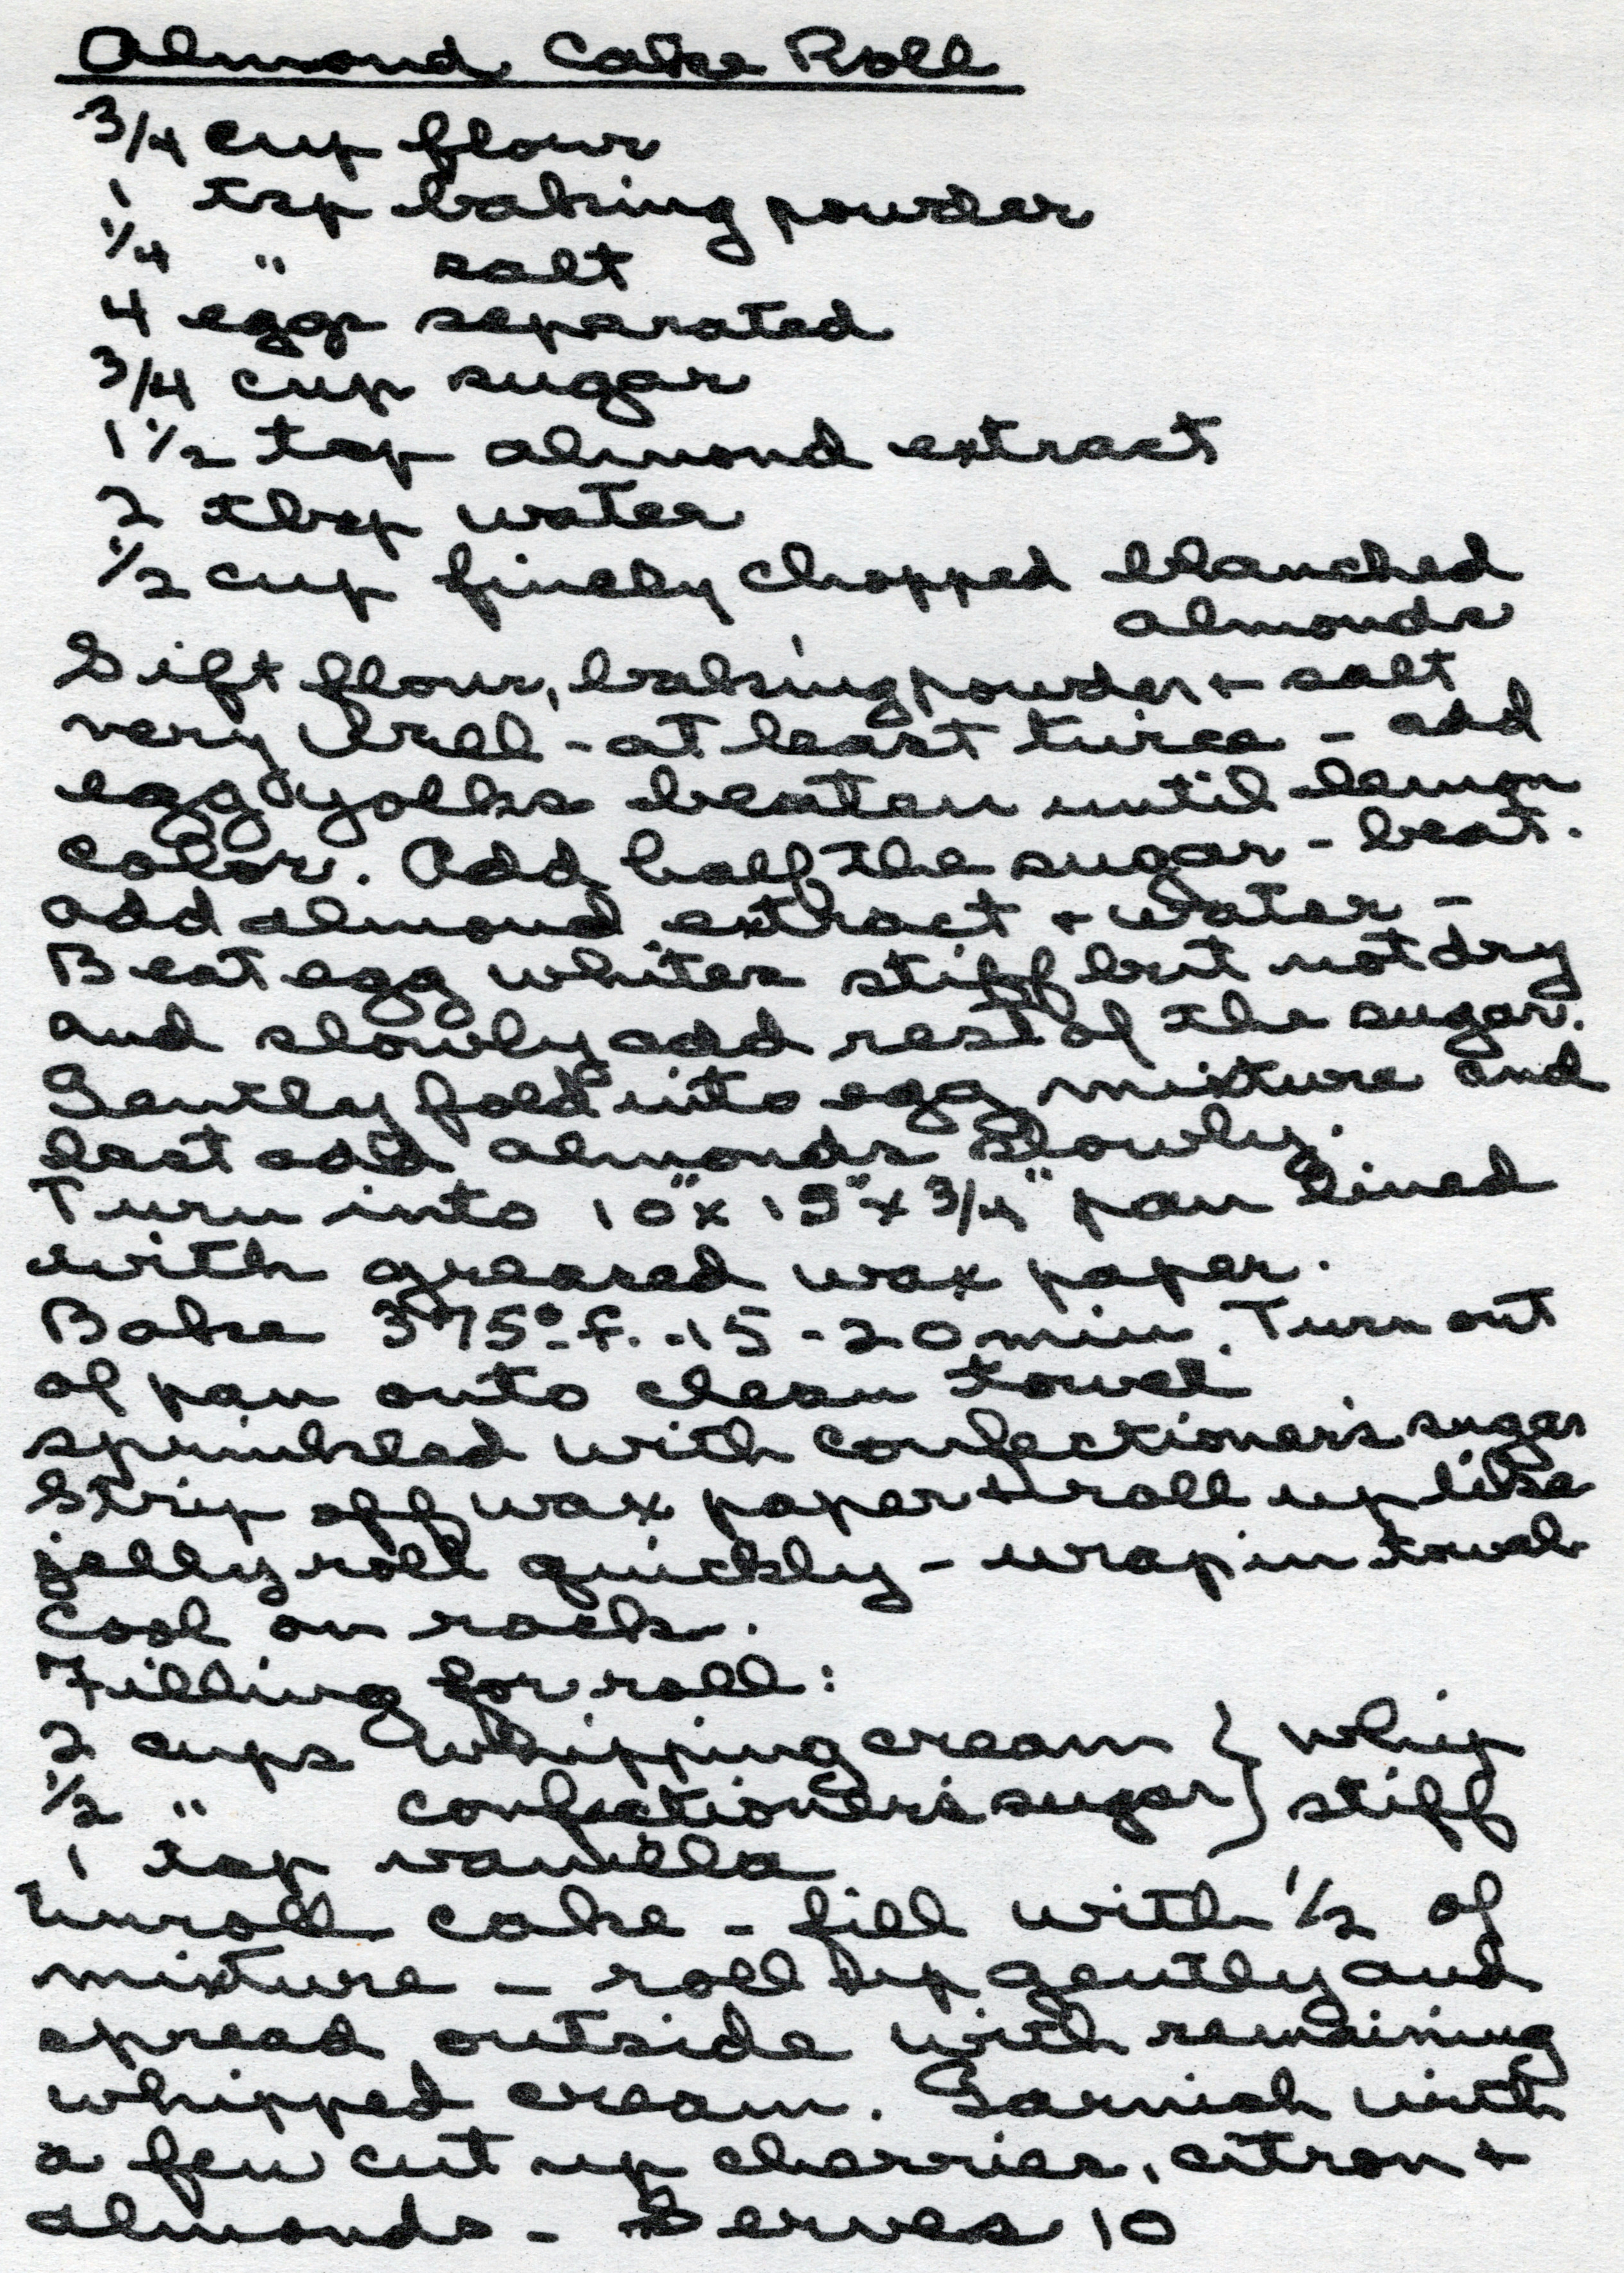 Almond Cake Roll
3/4 cup flour
1 tsp baking powder
1/4 " salt
4 eggs separated
3/4 cup sugar
1 1/2 tsp almond extract
2 tbsp water
1/2 cup finely chopped blanched
almonds
Sift flour, baking powder + salt
very well - at least twice - add
egg yolks beaten until lemon
color. Add half the sugar - beat.
add almond extract + water -
Beat egg whites stiff but not dry
and slowly add rest of the sugar.
Gently fold into egg mixture and
last add almonds slowly.
Turn into 10" x 15" x 3/4" pan lined
with greased wax paper.
Bake 375° f. - 15 - 20 min. Turn out
of pan onto clean towel
sprinkled with confectioner's sugar
Strip off wax paper + roll up like
jelly roll quickly - wrap in towel
Cool on rack.
Filling for roll:
2 cups whipping cream } whip
1/2 " confectioner's sugar } stiff
1 tsp vanilla
Unroll cake - fill with 1/2 of
mixture - roll up gently and
spread outside with remaining
whipped cream. Garnish with
a few cut up cherries, citron +
almonds - Serves 10